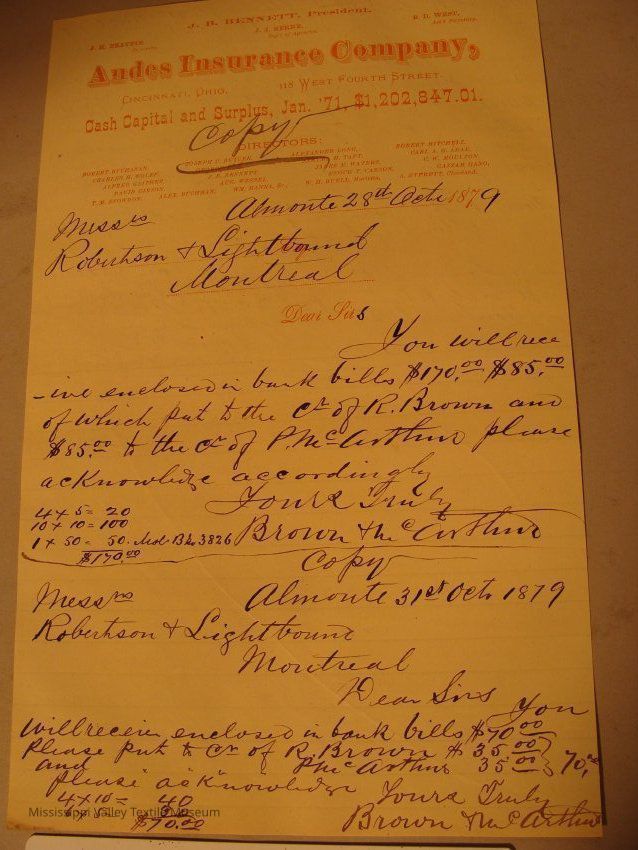 J. B. BENNETT, President.
J. H. BEATTIE
J. J. BERNE,
B. D. WEST,
Andes Insurance Company,
CINCINNATI, OHIO. 118 WEST FOURTH STREET.
Cash Capital and Surplus, Jan. '71, $1,202,847.01.
Copy
DIRECTORS:
ROBERT BUCHANAN,
CHARLES H. WOLFF,
ALFRED GAITHER,
DAVID GIBSON,
ALEX. BUCHMAN,
JOSEPH C. BUTLER
J. B. BENNETT,
AUG. WESSEL,
WM. HANNA,
ALEXANDER LONG,
H. TAFT,
ENOCH T. CARSON,
ROBERT MITCHELL,
C. W. MOULTON
Almonte 28th Oct. 1879
Messrs
Robertson & Lightbound
Montreal
Dear Sirs
You will rece
-ive enclosed in bank bills $170.00 $85.00
of which put to the Cr of R. Brown and
$85.00 to the Cr of P. McArthur please
acknowledge accordingly
Yours Truly
Brown & McArthur
4 x 5 = 20
10 x 10 = 100
1 x 50 = 50. 3826
$170.00
Copy
Almonte 31st Oct. 1879
Messrs
Robertson & Lightbound
Montreal
Dear Sirs
You
will receive enclosed in bank bills $70.00
Please put to Cr of R. Brown $35.00
and P McArthur 35.00 70.
please acknowledge
Yours Truly
Brown & McArthur
4 x 10 = 40
$70.00
Mississippi Valley Textile Museum